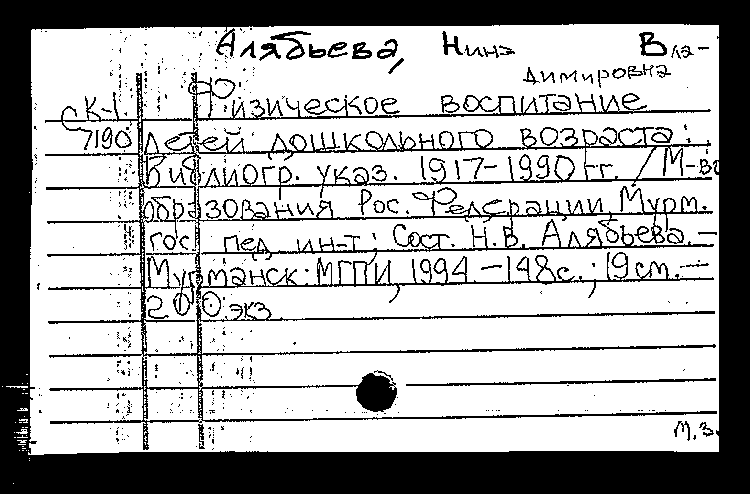 Алябьева, Нина Вла-
димировна
СК-1 Физическое воспитание
7190 детей дошкольного возраста:
Библиогр. указ. 1917-1990 гг. / М-во
образования Рос. Федерации, Мурм.
гос. пед. ин-т; Сост. Н.В. Алябьева.-
Мурманск: МГПИ, 1994.-148с.; 19см.-
200 экз.
М.З.